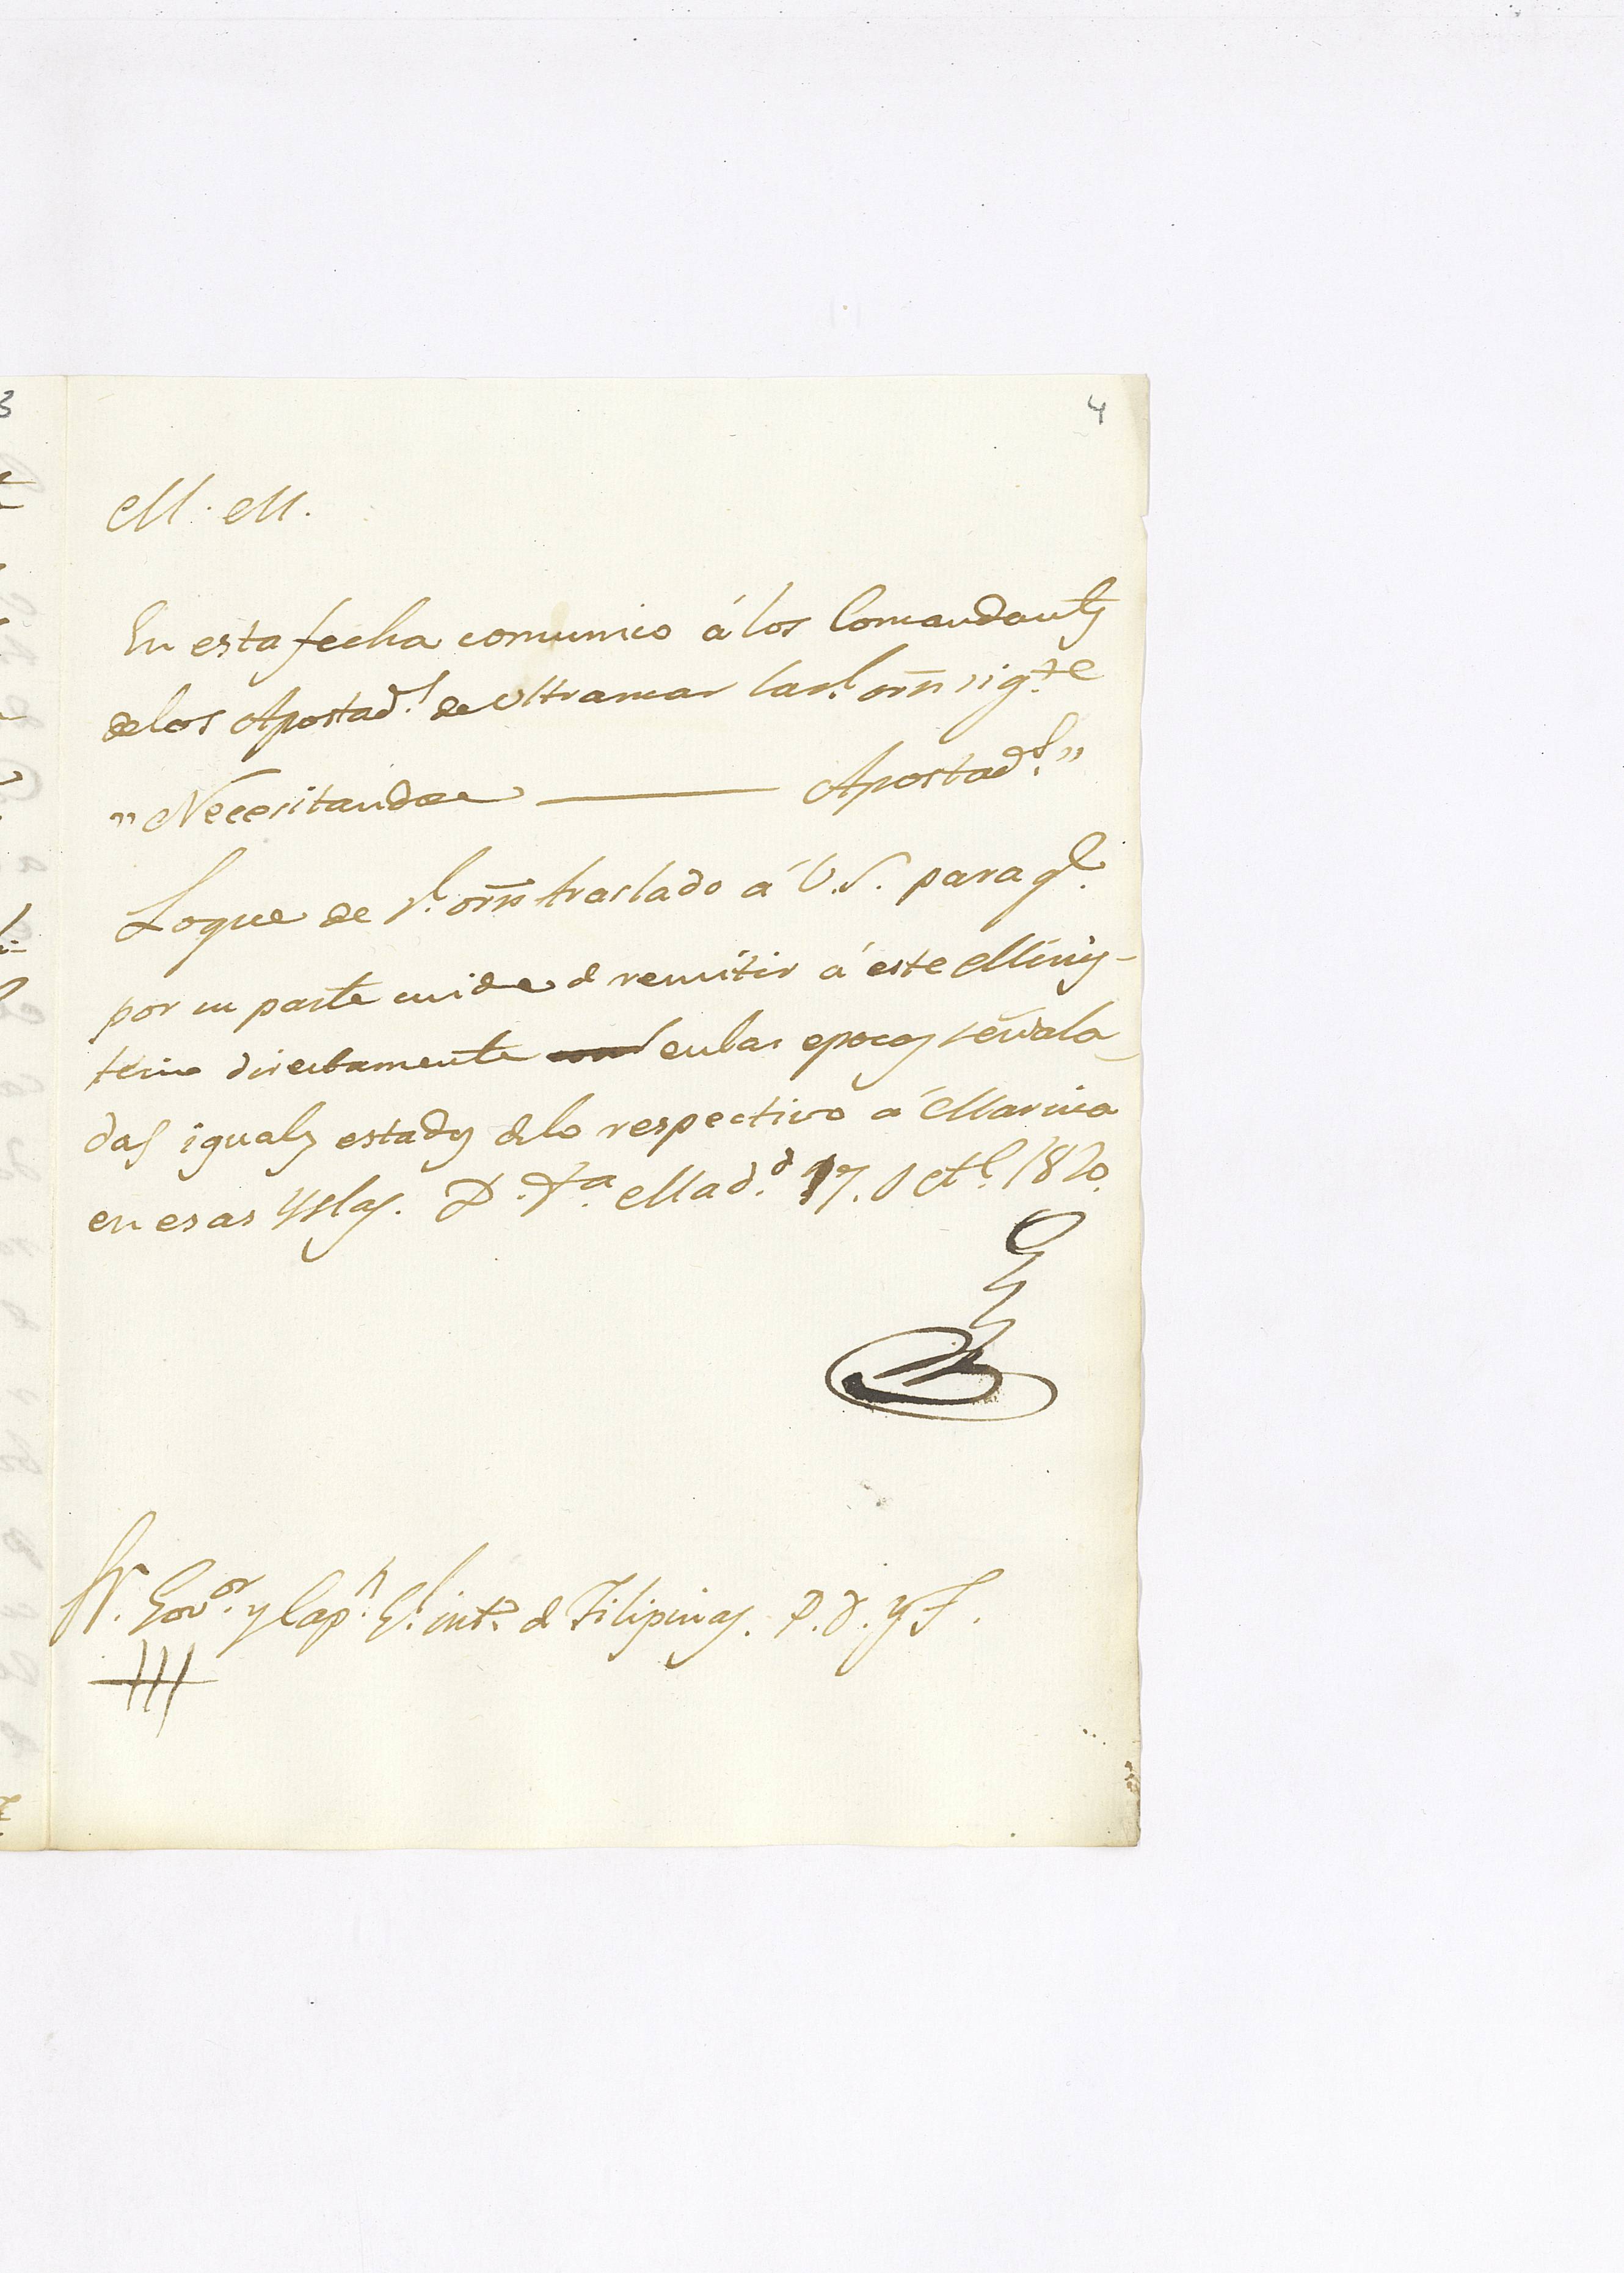 4
M. M.
En esta fecha comunico á los Comandantes
de los Apostads. de Ultramar la rl. orn sigte
"Necesitandose ——— Apostads."
Lo que de rl. orn traslado á V.S. para qe.
por su parte cuide de remitir á este Minis-
terio directamente en las epocas señala-
das iguales estados de lo respectivo á Marina
en esas Yslas. D. Fa. Madd. 17. Octe. 1820.
Sr. Govor. y Capn. Gl. into. de Filipinas. P. D. y F.